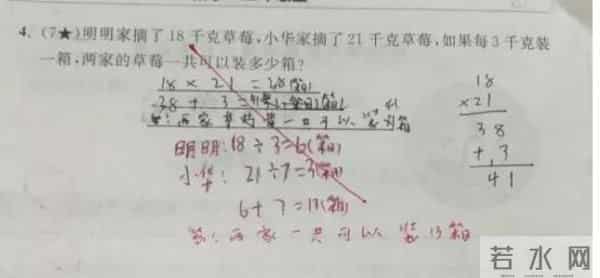 4. (7★)明明家摘了18千克草莓,小华家摘了21千克草莓,如果每3千克装
一箱,两家的草莓一共可以装多少箱?
18 × 21 = 38(箱)
38 + 3 = 41(箱)
答:两家草莓一共可以装41箱
18
×21
38
+ 3
41
明明:18÷3=6(箱)
小华:21÷7=3(箱)
6+7=13(箱)
答:两家一共可以装13箱
若水网